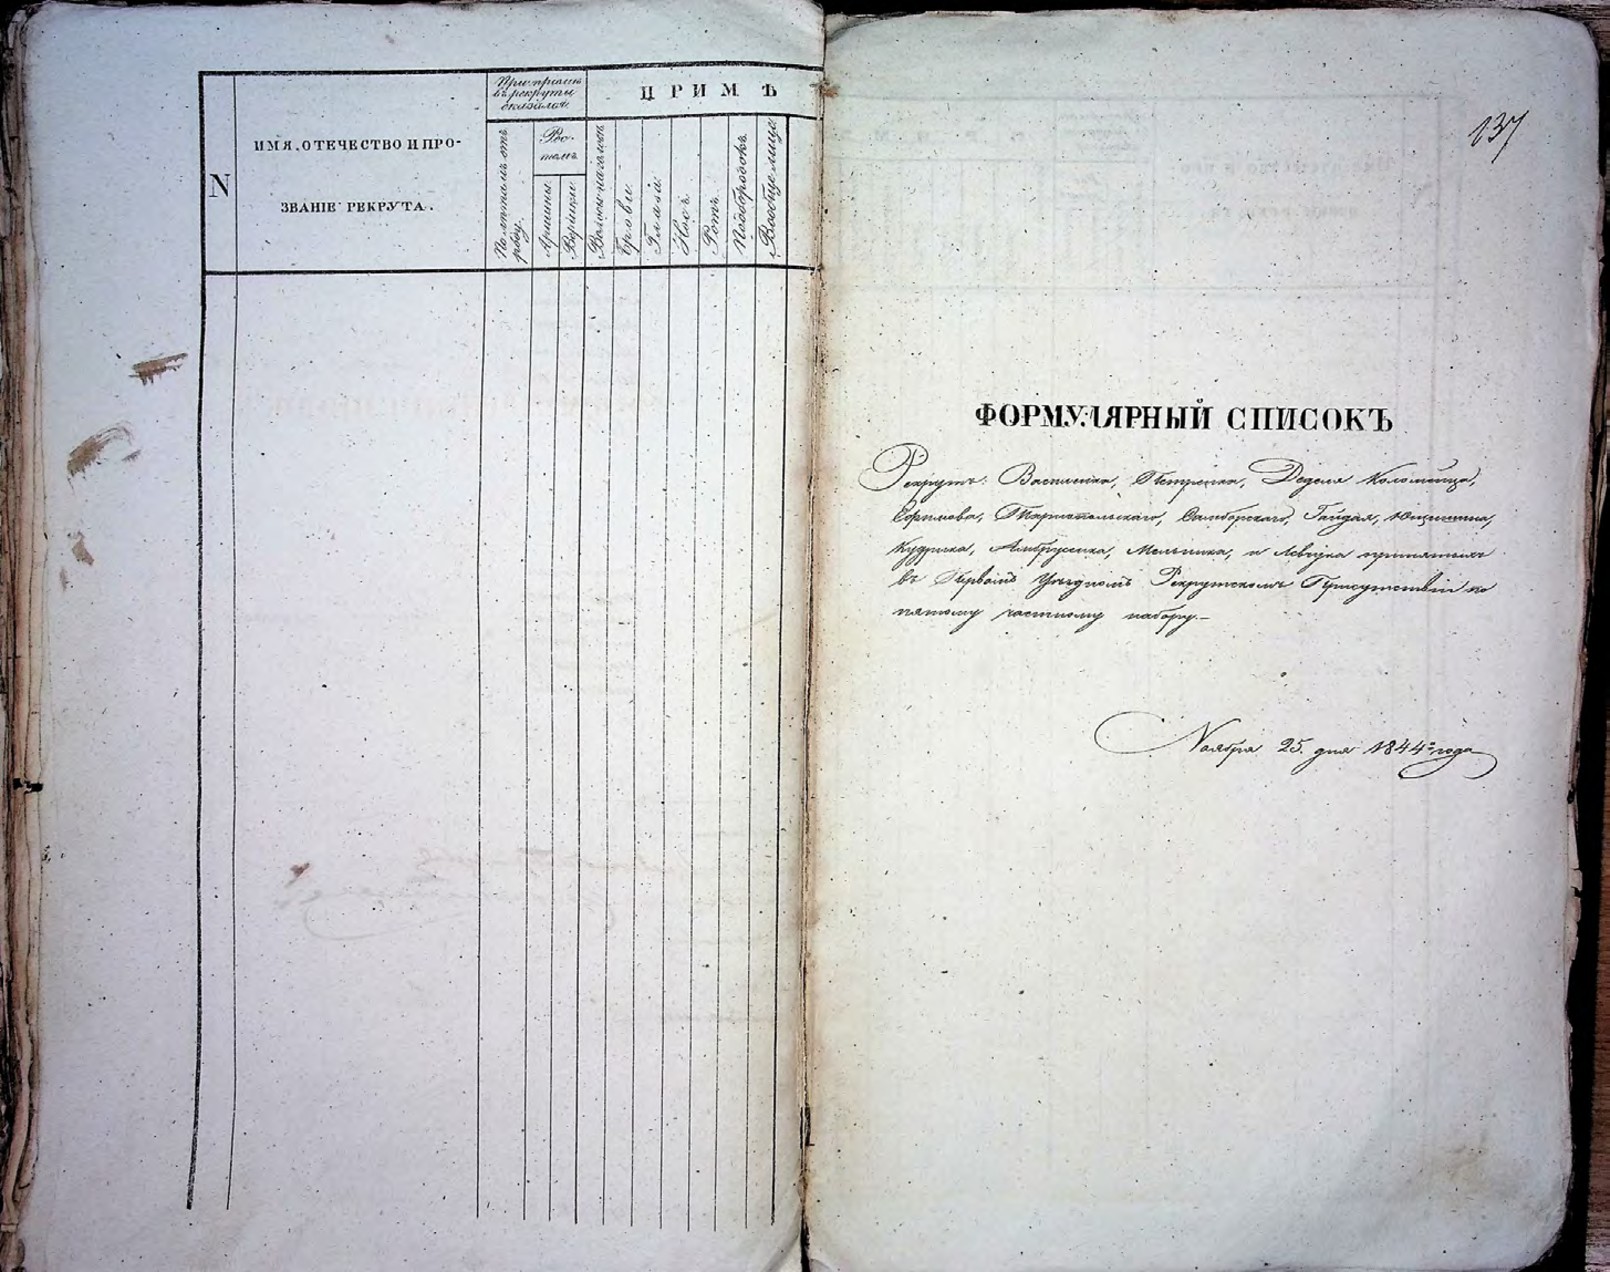 N
ИМЯ, ОТЕЧЕСТВО И ПРО-
ЗВАНІЕ РЕКРУТА.
При пріемѣ
въ рекруты
оказался:
По лѣтамъ отъ
роду.
Ро-
томъ
Аршины
Вершки
Волосы на головѣ
Брови
Глаза
Носъ
Ротъ
Подбородокъ
Вообще лице
ПРИМѢ
137
ФОРМУЛЯРНЫЙ СПИСОКЪ
Рекрутъ: Василенка, Петренка, Коломійца,
Ефимова, Тарнопольскаго, Самборскаго, Гайдая,
Кудрика, Амбросика, Мельника, и Левчука принятыхъ
въ Первомъ Уѣздномъ Рекрутскомъ Присутствіи по
пятому частному набору.—
Ноября 25. дня 1844го года